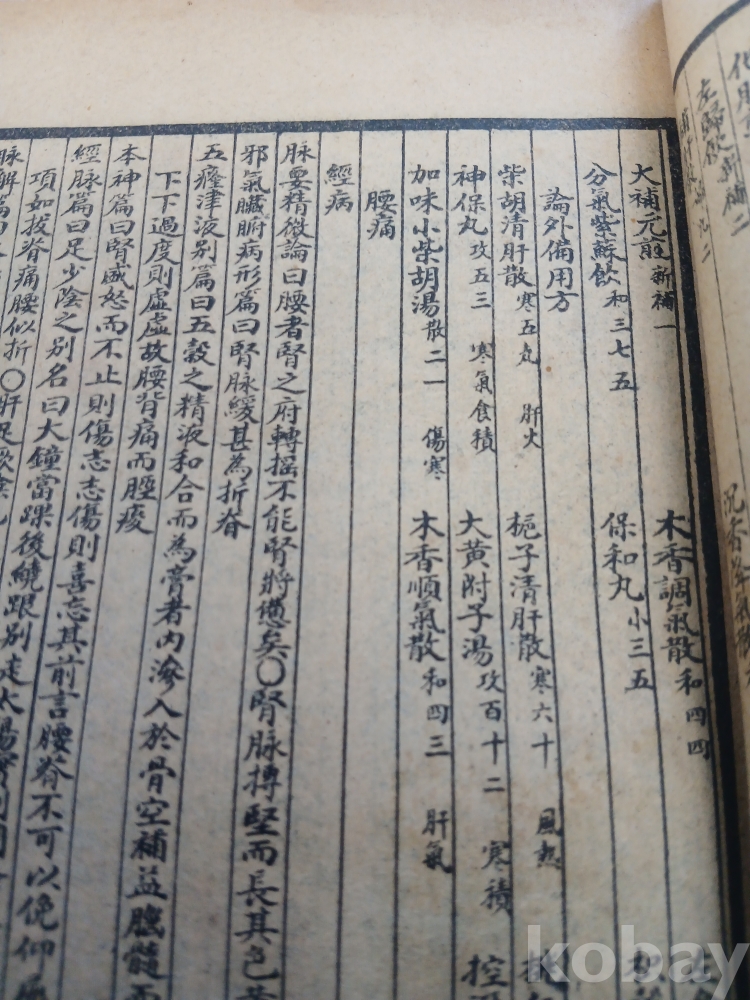 大補元煎 新補一 木香調氣散 和四四
分氣紫蘇飲 和三七五 保和丸 小三五
論外備用方
柴胡清肝散 寒五九 肝火 梔子清肝散 寒六十 風熱
神保丸 攻五三 寒氣食積 大黃附子湯 攻百十二 寒積
加味小柴胡湯 散二一 傷寒 木香順氣散 和四三 肝氣
腰痛
經病
脉要精微論曰腰者腎之府轉摇不能腎將憊矣〇腎脉搏堅而長其色黃
邪氣臟腑病形篇曰腎脉緩甚為折脊
五癃津液别篇曰五穀之精液和合而為膏者内滲入於骨空補益腦髓而
下下過度則虛虛故腰背痛而脛痠
本神篇曰腎盛怒而不止則傷志志傷則喜忘其前言腰脊不可以俛仰屈
經脉篇曰足少陰之别名曰大鐘當踝後繞跟别走太陽實則閉
項如拔脊痛腰似折〇肝足厥陰
kobay